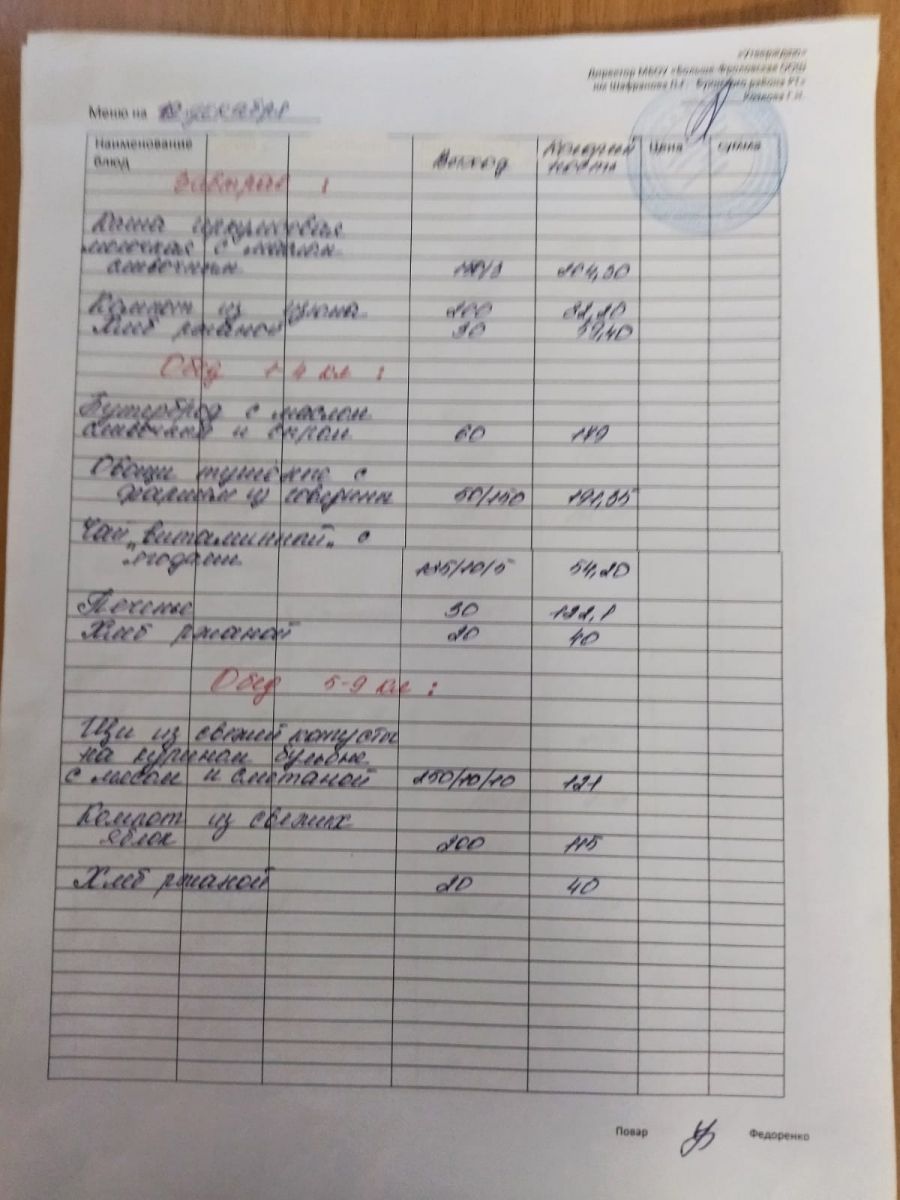 «Утверждаю»
Директор МБОУ «Больше-Фроловская ООШ
им Шафранова П.Г. Буинского района РТ»
Г.Н.
Меню на 12 декабря
Наименование блюд Выход Цена сумма
Завтрак :
Каша геркулесовая
молочная с маслом
сливочным 204,30
Компот из изюма 200
Хлеб ржаной 30 59,40
Обед 1-4 кл :
Бутерброд с маслом
сливочным и сыром 60
Овощи тушёные с
из говядины 50/150 191,35
Чай „витаминной" с
ягодами 54,20
Печенье 30 122,1
Хлеб ржаной 20 40
Обед 5-9 кл :
Щи из свежий капусты
на курином бульоне
с мясом и сметаной 250/10/10 121
Компот из свежих
яблок 200 115
Хлеб ржаной 20 40
Повар Федоренко